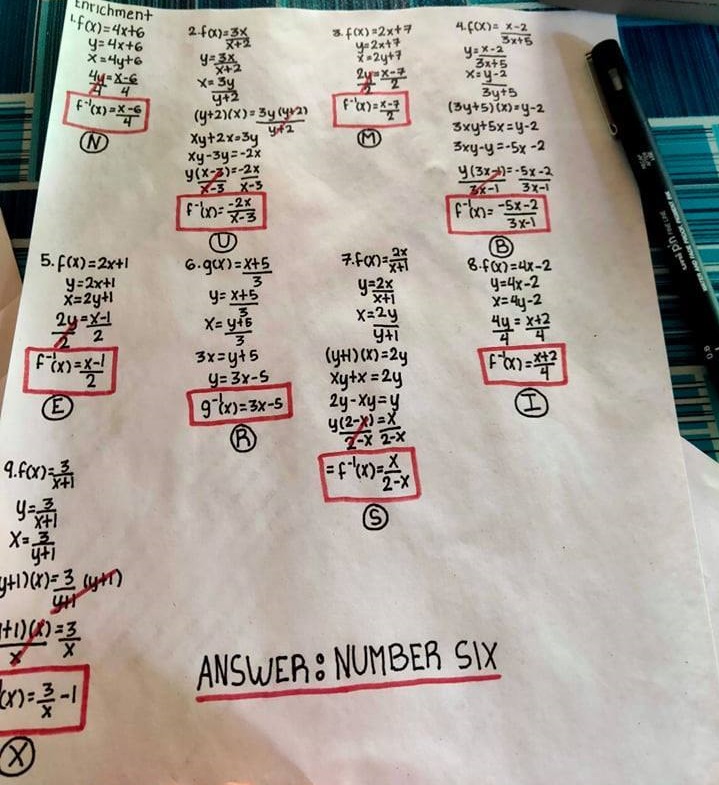 Enrichment
1. f(x)=4x+6
y=4x+6
x=4y+6
4y/4=x-6/4
f⁻¹(x)=x-6/4
N
2. f(x)=3x/x+2
y=3x/x+2
x=3y/y+2
(y+2)(x)=3y(y+2)/y+2
xy+2x=3y
xy-3y=-2x
y(x-3)/x-3=-2x/x-3
f⁻¹(x)=-2x/x-3
U
3. f(x)=2x+7
y=2x+7
x=2y+7
2y/2=x-7/2
f⁻¹(x)=x-7/2
M
4. f(x)=x-2/3x+5
y=x-2/3x+5
x=y-2/3y+5
(3y+5)(x)=y-2
3xy+5x=y-2
3xy-y=-5x-2
y(3x-1)/3x-1=-5x-2/3x-1
f⁻¹(x)=-5x-2/3x-1
B
5. f(x)=2x+1
y=2x+1
x=2y+1
2y/2=x-1/2
f⁻¹(x)=x-1/2
E
6. g(x)=x+5/3
y=x+5/3
x=y+5/3
3x=y+5
y=3x-5
g⁻¹(x)=3x-5
R
7. f(x)=2x/x+1
y=2x/x+1
x=2y/y+1
(y+1)(x)=2y
xy+x=2y
2y-xy=y
y(2-x)/2-x=x/2-x
=f⁻¹(x)=x/2-x
S
8. f(x)=4x-2
y=4x-2
x=4y-2
4y/4=x+2/4
f⁻¹(x)=x+2/4
I
9. f(x)=3/x+1
y=3/x+1
x=3/y+1
y+1)(x)=3/y+1 (y+1)
+1)(x)/x=3/x
(x)=3/x-1
X
ANSWER: NUMBER SIX